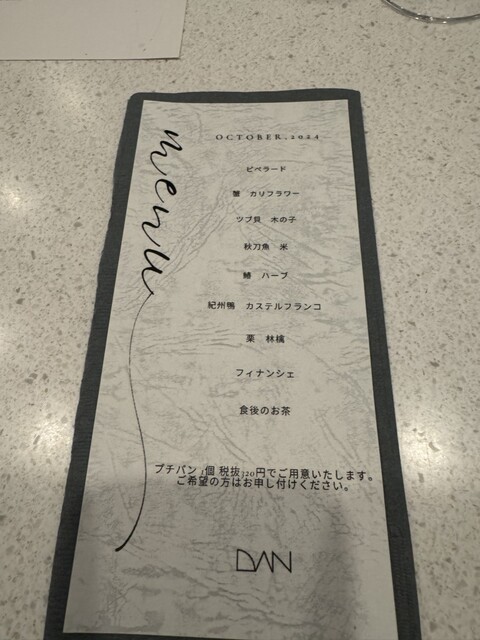 menu
OCTOBER.2024
ピペラード
蟹 カリフラワー
ツブ貝 木の子
秋刀魚 米
鰆 ハーブ
紀州鴨 カステルフランコ
栗 林檎
フィナンシェ
食後のお茶
プチパン 1個 税抜320円でご用意いたします。
ご希望の方はお申し付けください。
DAN